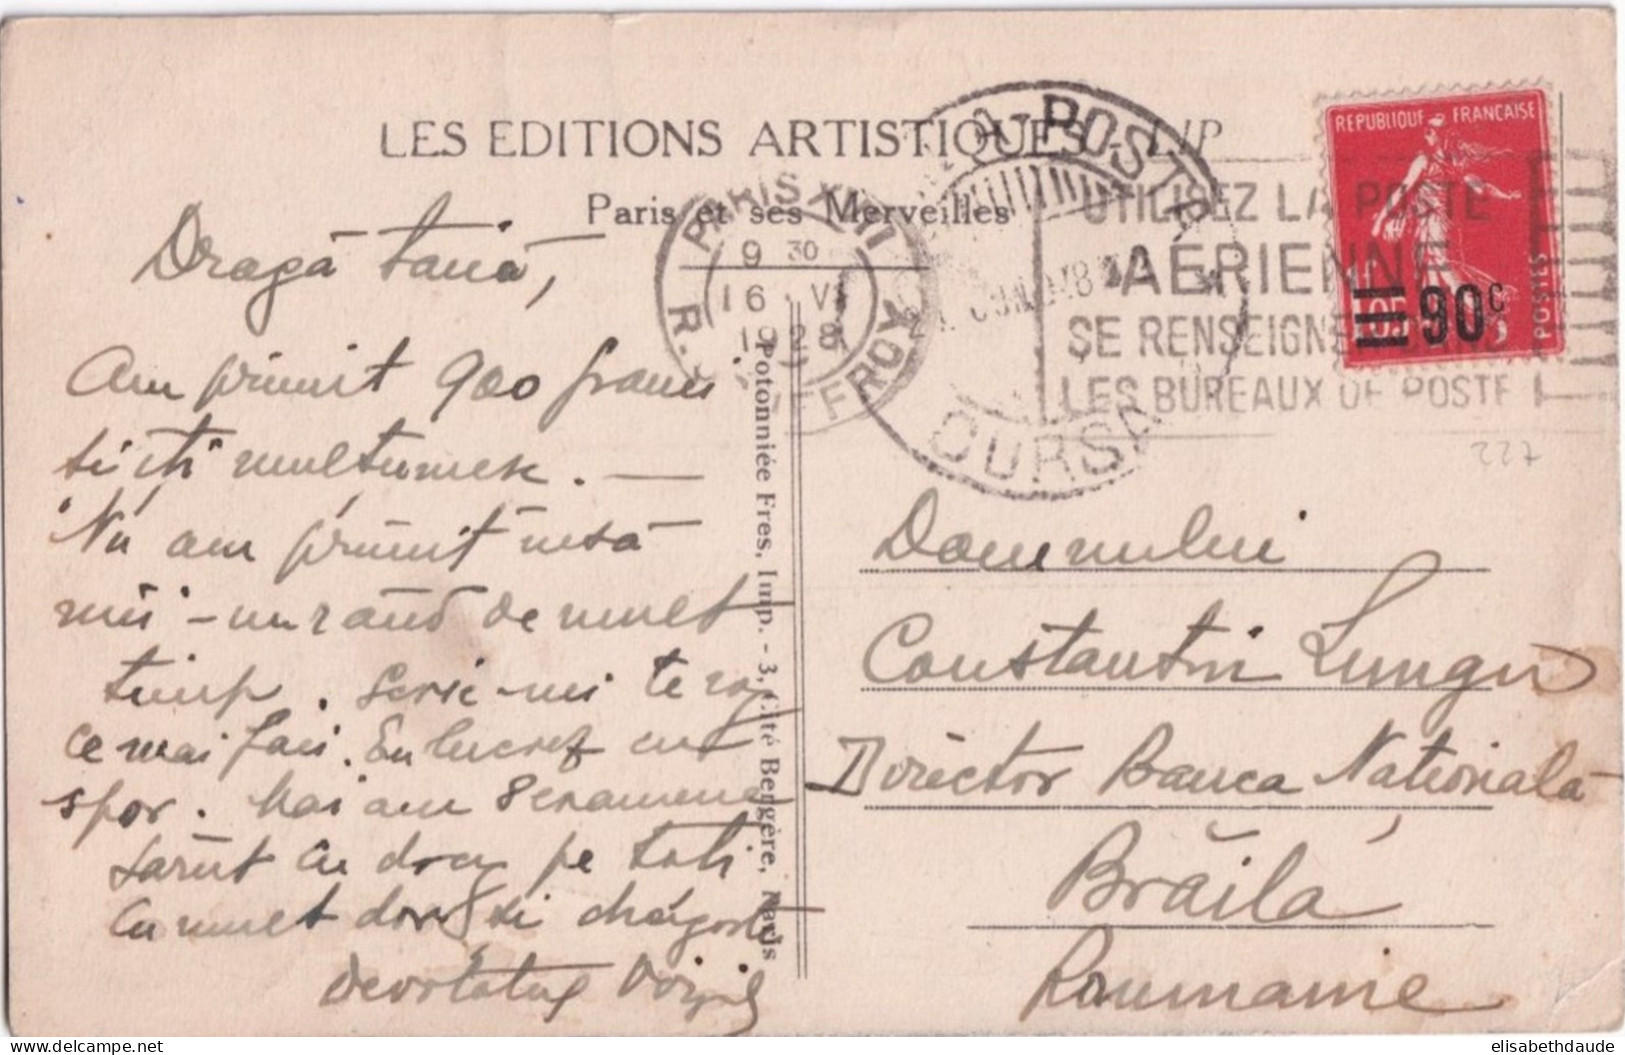 LES EDITIONS ARTISTIQUES LIP
Paris et ses Merveilles
Dragă tată,
Am primit 900 franci
si iti multumesc. —
Nu am primit însă
nici-un rând de mult
timp. Scrie-mi te rog
ce mai faci. Eu lucrez cu
spor. Mai am 8 examene
Sărut cu dor pe toti
cu mult dor si dragoste
devotatul Virgil
Potonniée Fres, Imp. - 3, Cité Bergère, Paris
PARIS XIII
9 30
16 VI
R. JEFFROY
POSTA
BURSA
UTILISEZ LA POSTE
AÉRIENNE
SE RENSEIGNER DANS
LES BUREAUX DE POSTE
REPUBLIQUE FRANÇAISE
POSTES
1F 05
90c
227
Domnului
Constantin Lungu
Director Banca Nationala
Brăila
Roumanie
https://www.delcampe.net
elisabethdaude